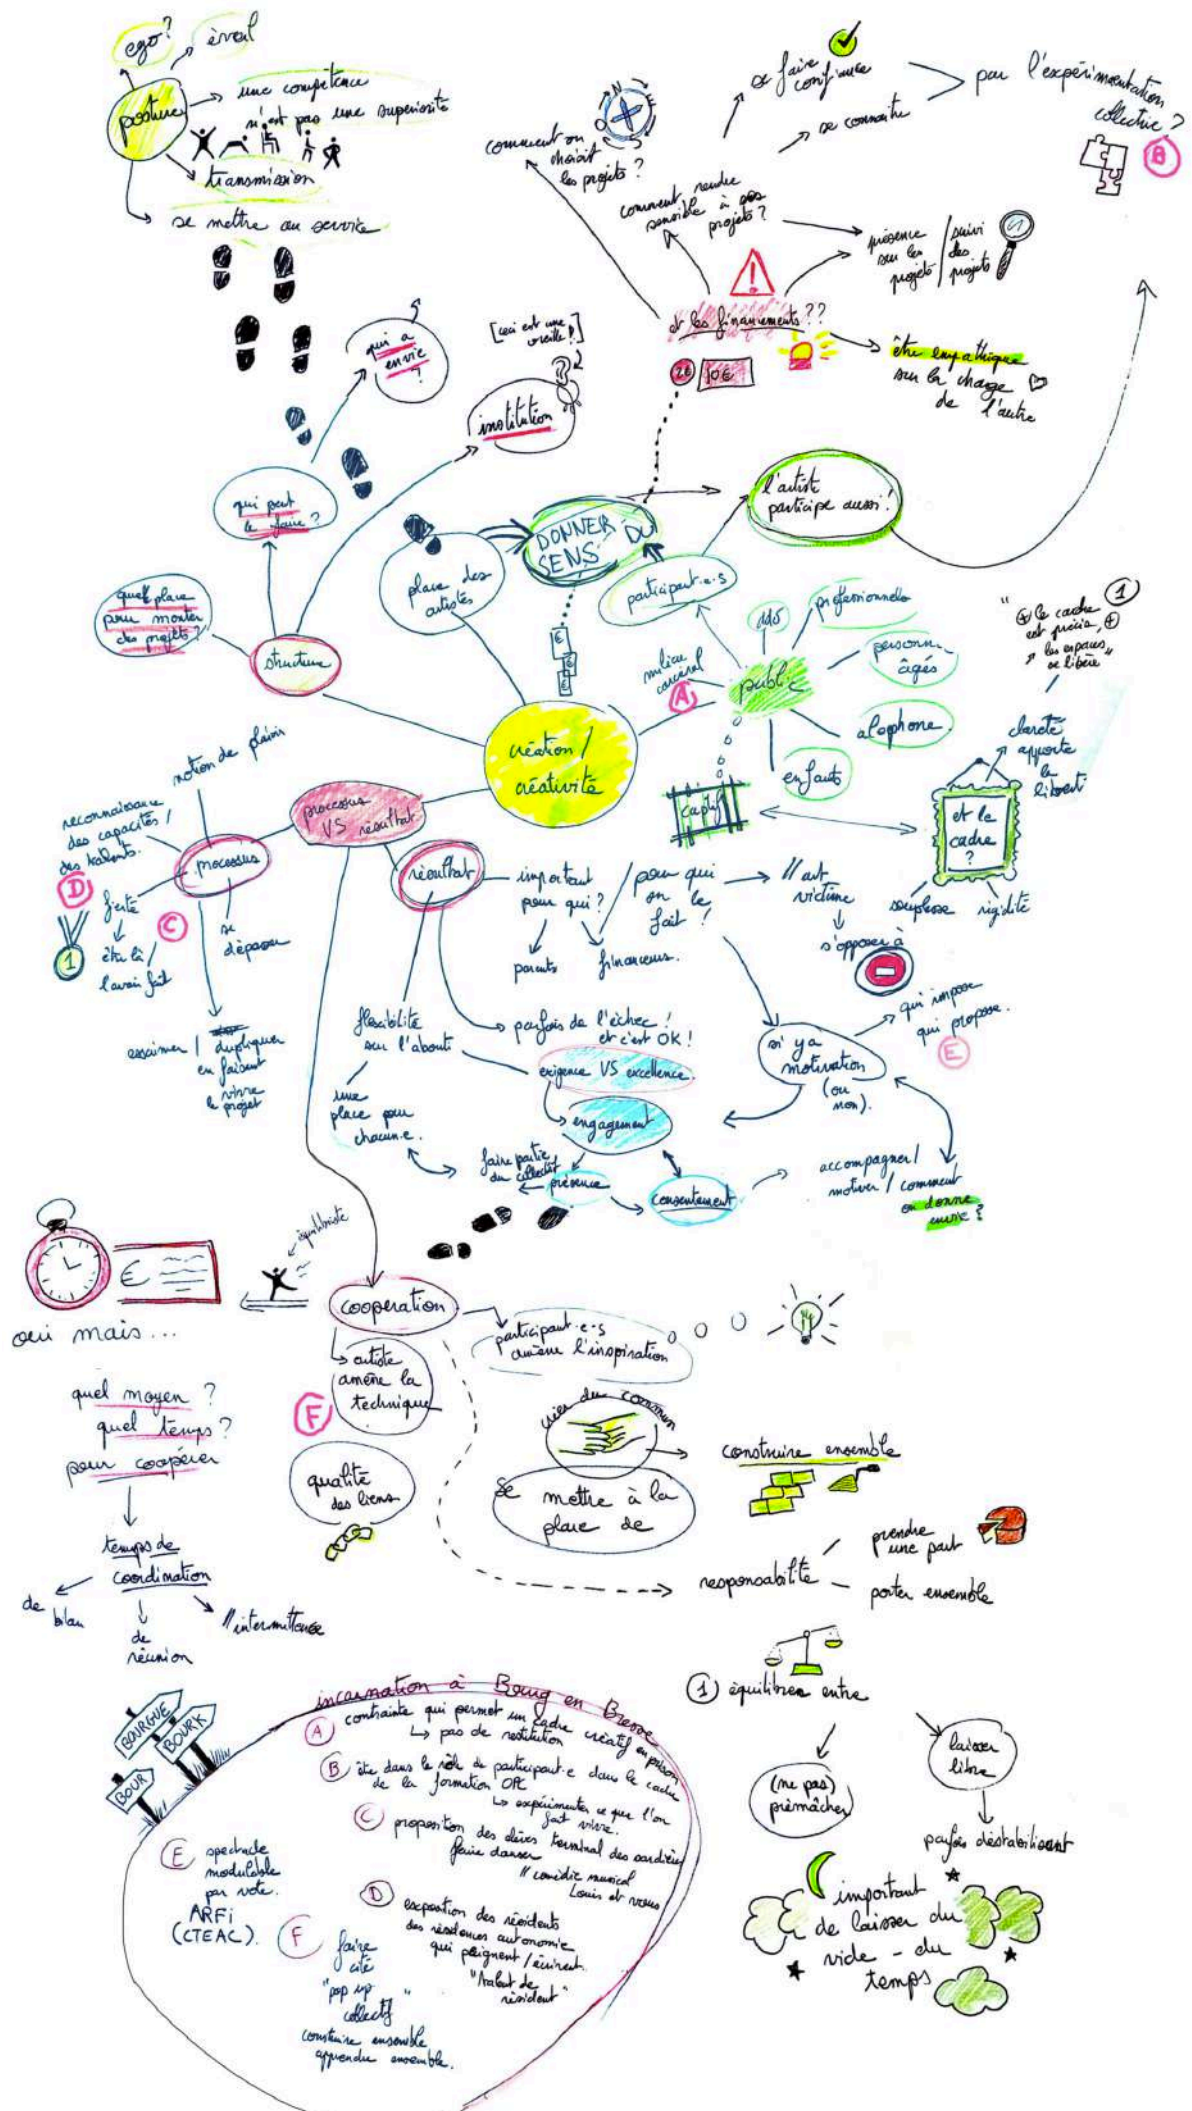 ego?
éveil
posture
une compétence
n'est pas une supériorité
transmission
se mettre au service
N
E
S
O
comment on
choisit
les projets ?
se faire
confiance
se connaître
par l'expérimentation
collective ?
B
comment rendre
sensible à ses
projets ?
présence
sur les
projets
/ suivi
des
projets
et les financements ??
2€
10€
être empathique
sur la charge
de l'autre
qui a
envie
?
[ceci est une
oreille !]
institution
qui peut
le faire ?
quelle place
pour monter
des projets ?
structure
place des
artistes
DONNER DU
SENS
participant·e·s
l'artiste
participe aussi !
€
€
€
milieu
carcéral
A
public
ados
professionnels
personn.
âgés
alophone
enfants
captif
"⊕ le cadre
est précis, ⊕
↗ les espaces
se libère"
1
clareté
apporte
la
liberté
et le
cadre
?
souplesse
rigidité
création /
créativité
processus
VS résultat
notion de plaisir
reconnaissance
des capacités /
des talents.
processus
D
fierté
1
être là /
l'avoir fait
C
se
dépasser
essaimer / dupliquer
en faisant
vivre
le projet
résultat
important
pour qui ?
parents
financeurs.
/ pour qui
on le
fait !
// art
victime
s'opposer à
flexibilité
sur l'abouti
une
place pour
chacun·e.
parfois de l'échec !
et c'est OK !
exigence VS excellence.
engagement
faire partie
du collectif
présence
consentement
si y a
motivation
(ou
non).
qui impose
qui propose.
E
accompagner /
motiver / comment
on donne
envie ?
équilibriste
€
oui mais...
coopération
participant·e·s
amène l'inspiration
artiste
amène la
technique
F
quel moyen ?
quel temps ?
pour coopérer
temps de
coordination
de
bilan
de
réunion
// intermittence
qualité
des liens
créer du commun
se mettre à la
place de
construire ensemble
responsabilité
prendre
une part
porter ensemble
1 équilibre entre
(ne pas)
prémâcher
laisser
libre
parfois déstabilisant
important
de laisser du
vide - du
temps
BOURGUE
BOURK
BOUR
incarnation à Bourg en Bresse
A contrainte qui permet un cadre créatif en prison
↳ pas de restitution
B être dans le rôle de participant·e dans le cadre
de la formation OPC
↳ expérimenter ce que l'on
fait vivre.
C proposition des élèves terminal des sardières
faire danser
// comédie musical
Louis et vous
D exposition des résidents
des résidences autonomie
qui peignent / écrivent.
"talent de
résident"
E spectacle
modulable
par vote.
ARFi
(CTEAC).
F faire
cité
"pop up
collectif"
construire ensemble
apprendre ensemble.